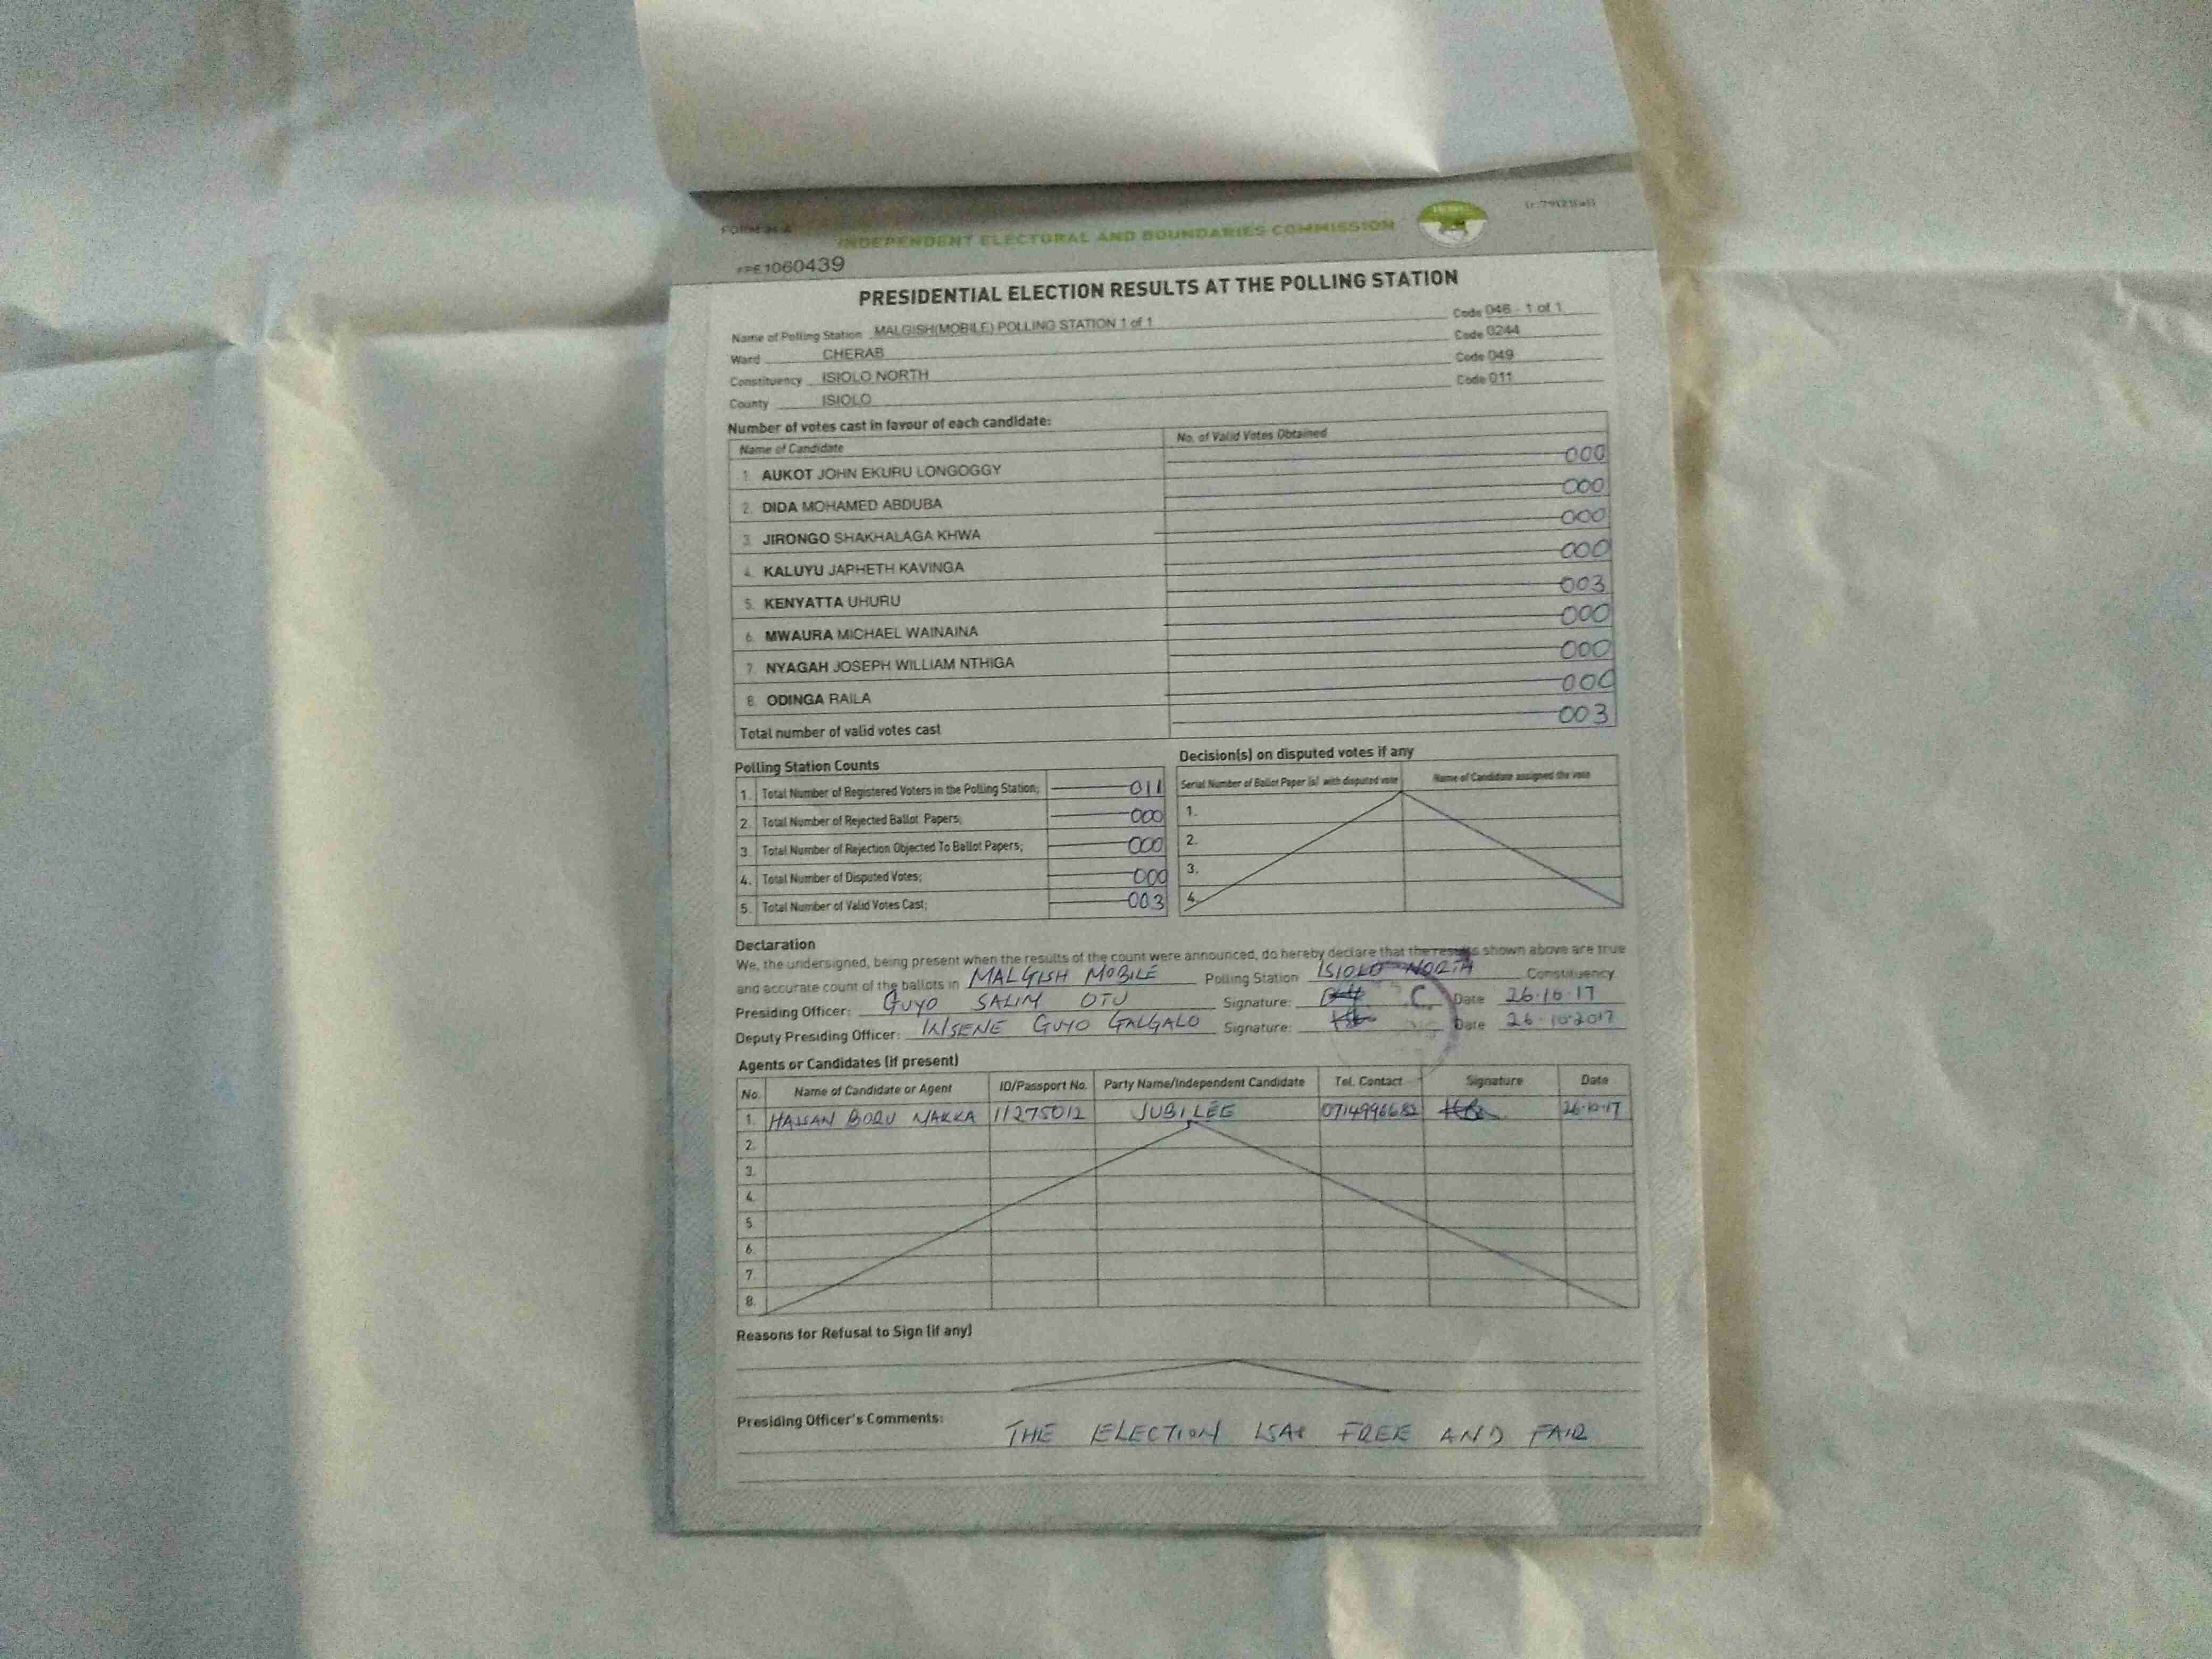 FORM 34 A
INDEPENDENT ELECTORAL AND BOUNDARIES COMMISSION
1060439
PRESIDENTIAL ELECTION RESULTS AT THE POLLING STATION
Name of Polling Station MALGISH(MOBILE) POLLING STATION 1 of 1 Code 046 - 1 of 1
Ward CHERAB Code 0244
Constituency ISIOLO NORTH Code 049
County ISIOLO Code 011
Number of votes cast in favour of each candidate:
Name of Candidate No. of Valid Votes Obtained
1. AUKOT JOHN EKURU LONGOGGY 000
2. DIDA MOHAMED ABDUBA 000
3. JIRONGO SHAKHALAGA KHWA 000
4. KALUYU JAPHETH KAVINGA 000
5. KENYATTA UHURU 003
6. MWAURA MICHAEL WAINAINA 000
7. NYAGAH JOSEPH WILLIAM NTHIGA 000
8. ODINGA RAILA 000
Total number of valid votes cast 003
Polling Station Counts
1. Total Number of Registered Voters in the Polling Station; 011
2. Total Number of Rejected Ballot Papers; 000
3. Total Number of Rejection Objected To Ballot Papers; 000
4. Total Number of Disputed Votes; 000
5. Total Number of Valid Votes Cast; 003
Decision(s) on disputed votes if any
Serial Number of Ballot Paper (s) with disputed vote Name of Candidate assigned the vote
1.
2.
3.
4.
Declaration
We, the undersigned, being present when the results of the count were announced, do hereby declare that the results shown above are true
and accurate count of the ballots in MALGISH MOBILE Polling Station ISIOLO NORTH Constituency
Presiding Officer: GUYO SALIM OTU Signature: Date 26.10.17
Deputy Presiding Officer: GUYO GALGALO Signature: Date 26.10.2017
Agents or Candidates (if present)
No. Name of Candidate or Agent ID/Passport No. Party Name/Independent Candidate Tel. Contact Signature Date
1. HASSAN BORU 11275012 JUBILEE 0714996682 26.10.17
2.
3.
4.
5.
6.
7.
8.
Reasons for Refusal to Sign (if any)
Presiding Officer's Comments: THE ELECTION FREE AND FAIR